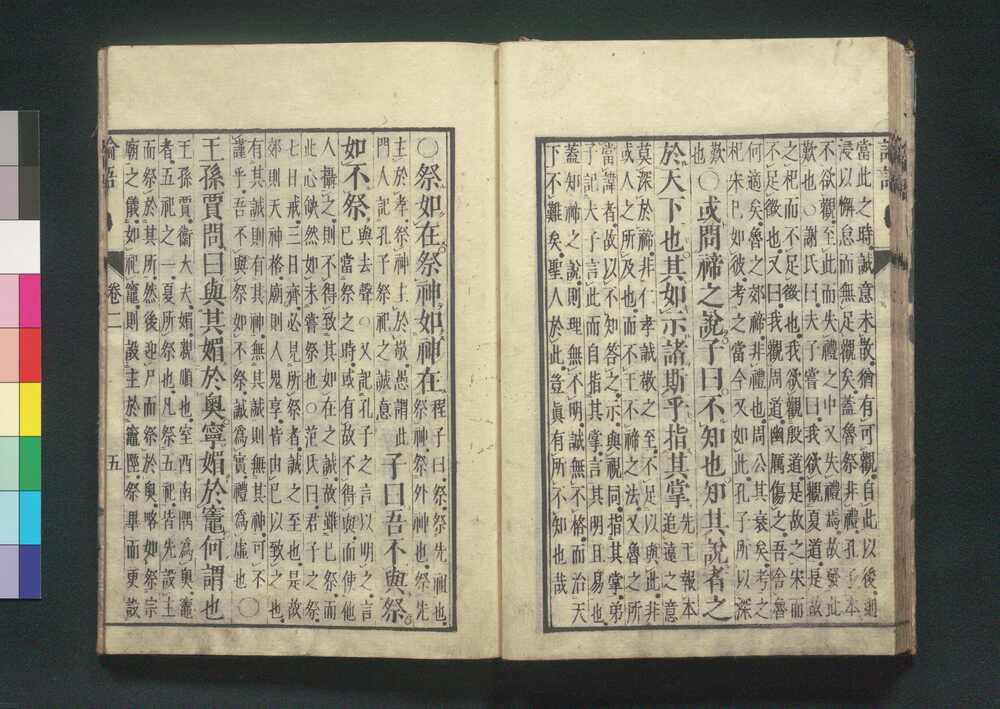 論語
當此之時。誠意未散。猶有可觀。自此以後。則
浸以懈怠而無足觀矣。蓋魯祭非禮。孔子本
不欲觀。至此而失禮之中又失禮焉。故發此
歎也。○謝氏曰。夫子嘗曰。我欲觀夏道。是故
之杞而不足徵也。我欲觀殷道。是故之宋而
不足徵也。又曰。我觀周道。幽厲傷之。吾舍魯
何適矣。魯之郊禘。非禮也。周公其衰矣。考之
杞宋已如彼。考之當今又如此。孔子所以深
歎也
○或問禘之說。子曰。不知也。知其說者之
於天下也。其如示諸斯乎。指其掌
先王報本
追遠之意
莫深於禘。非仁孝誠敬之至。不足以與此。非
或人之所及也。而不王不禘之法。又魯之所
當諱者。故以不知答之。示。與視同。指其掌。弟
子記夫子言此而自指其掌。言其明且易也。
蓋知禘之說。則理無不明。誠無不格。而治天
下不難矣。聖人於此。豈眞有所不知也哉
○祭如在。祭神如神在
程子曰。祭。祭先祖也。
祭神。祭外神也。祭先
主於孝。祭神主於敬。愚謂此
門人記孔子祭祀之誠意
子曰吾不與祭。
如不祭
與去聲。○又記孔子之言以明之。言
已當祭之時。或有故不得與。而使他
人攝之。則不得致其如在之誠。故雖已祭。而
此心缺然。如未嘗祭也。○范氏曰。君子之祭。
七日戒。三日齊。必見所祭者。誠之至也。是故
郊則天神格。廟則人鬼享。皆由已以致之也。
有其誠則有其神。無其誠則無其神。可不
謹乎。吾不與祭如不祭。誠爲實。禮爲虛也 ○
王孫賈問曰。與其媚於奧。寧媚於竈。何謂也
王孫賈。衛大夫。媚。親順也。室西南隅爲奧。竈
者。五祀之一。夏所祭也。凡祭五祀。皆先設主
而祭於其所。然後迎尸而祭於奧。略如祭宗
廟之儀。如祀竈。則設主於竈陘。祭畢而更設
論語 卷二 五